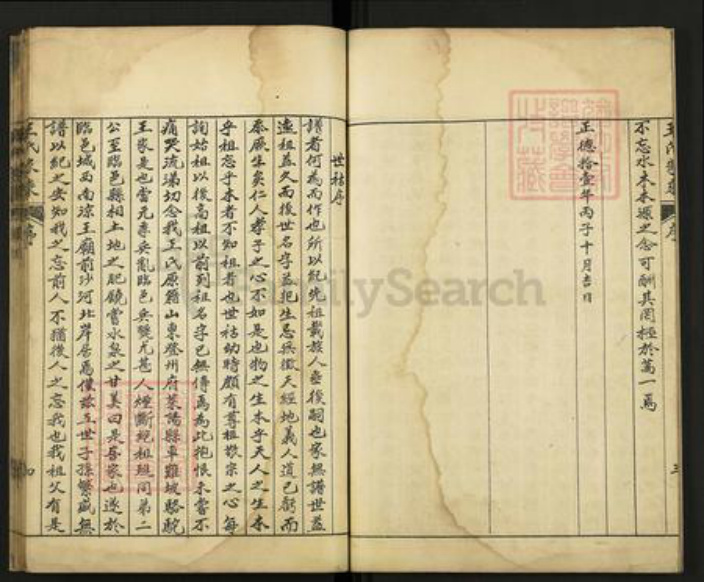 王氏家乘 序 三
不忘水木本源之念可酬其罔極於萬一焉
正德拾壹年丙子十月吉日
世祜序
譜者何為而作也所以紀先祖載族人垂後嗣也家無譜世益
遠祖益久而後世名字益犯生忌無徵天經地義人道已虧而
泰厥生矣仁人孝子之心不如是也物之生本乎天人之生本
乎祖忘乎本者不知祖者也世祜幼時頗有尊祖敬宗之心每
詢始祖以後高祖以前列祖名字已無傳焉為此抱恨未嘗不
痛哭流涕切念我王氏原籍山東登州府萊陽縣車難坡駱駝
王家是也當元季兵亂臨邑兵燹尤甚人煙斷絕祖班同第二
公至臨邑縣相土地之肥饒嘗水泉之甘美曰是吾家也遂於
臨邑城西南涼王廟前沙河北岸居焉僅茲五世子孫繁盛無
譜以紀之安知我之忘前人不猶後人之忘我也我祖父有是
王氏家乘 序 四
FamilySearch